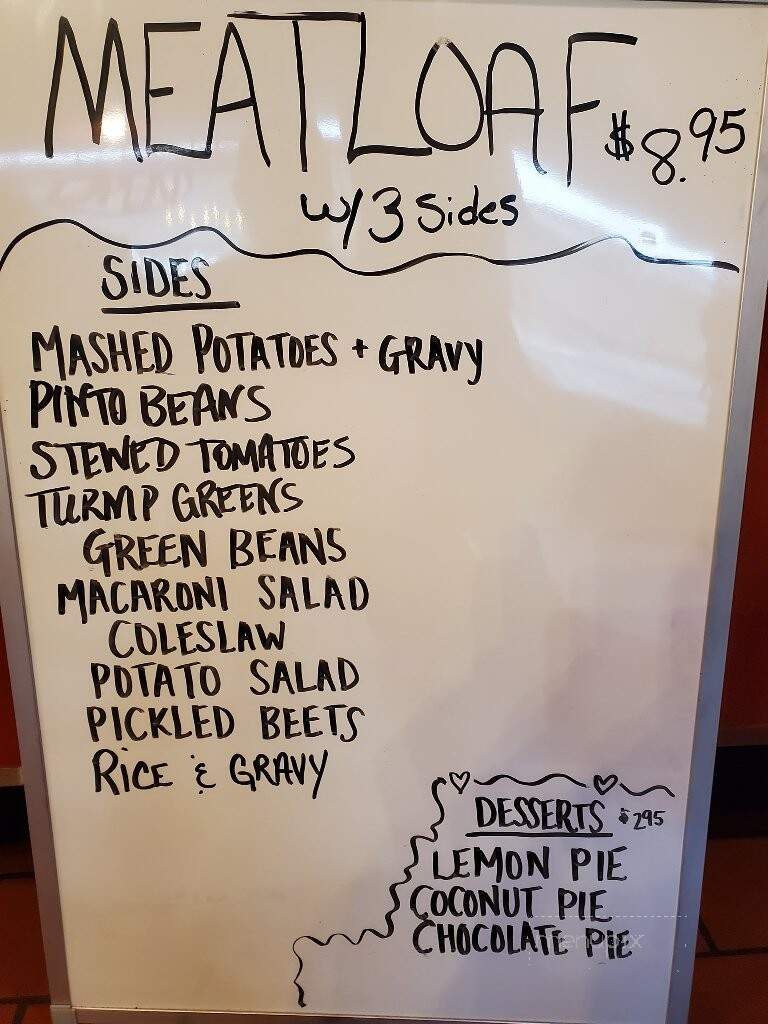 MEATLOAF $8.95
w/ 3 Sides
SIDES
MASHED POTATOES + GRAVY
PINTO BEANS
STEWED TOMATOES
TURNIP GREENS
GREEN BEANS
MACARONI SALAD
COLESLAW
POTATO SALAD
PICKLED BEETS
RICE & GRAVY
DESSERTS $2.95
LEMON PIE
COCONUT PIE
CHOCOLATE PIE